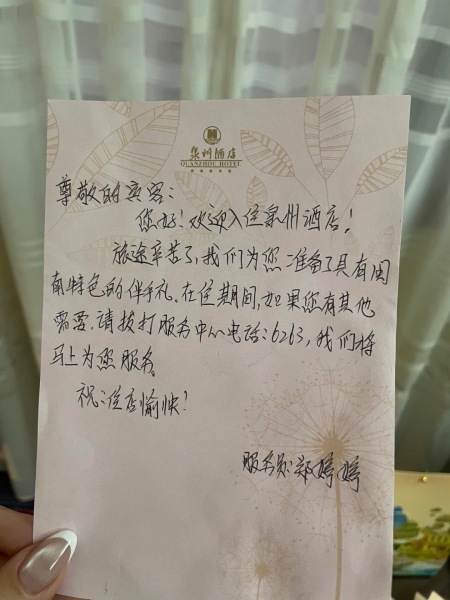 泉州酒店
QUANZHOU HOTEL
尊敬的宾客：
您好！欢迎入住泉州酒店！
旅途辛苦了，我们为您准备了具有闽
南特色的伴手礼。在住期间，如果您有其他
需要，请拨打服务中心电话：6263，我们将
马上为您服务。
祝：住店愉快！
服务员：郑婷婷